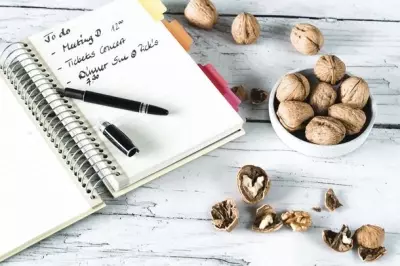 To do
- Meeting @ 12:00
- Tickets Concert
- Dinner Sue @ Rick's
7:30